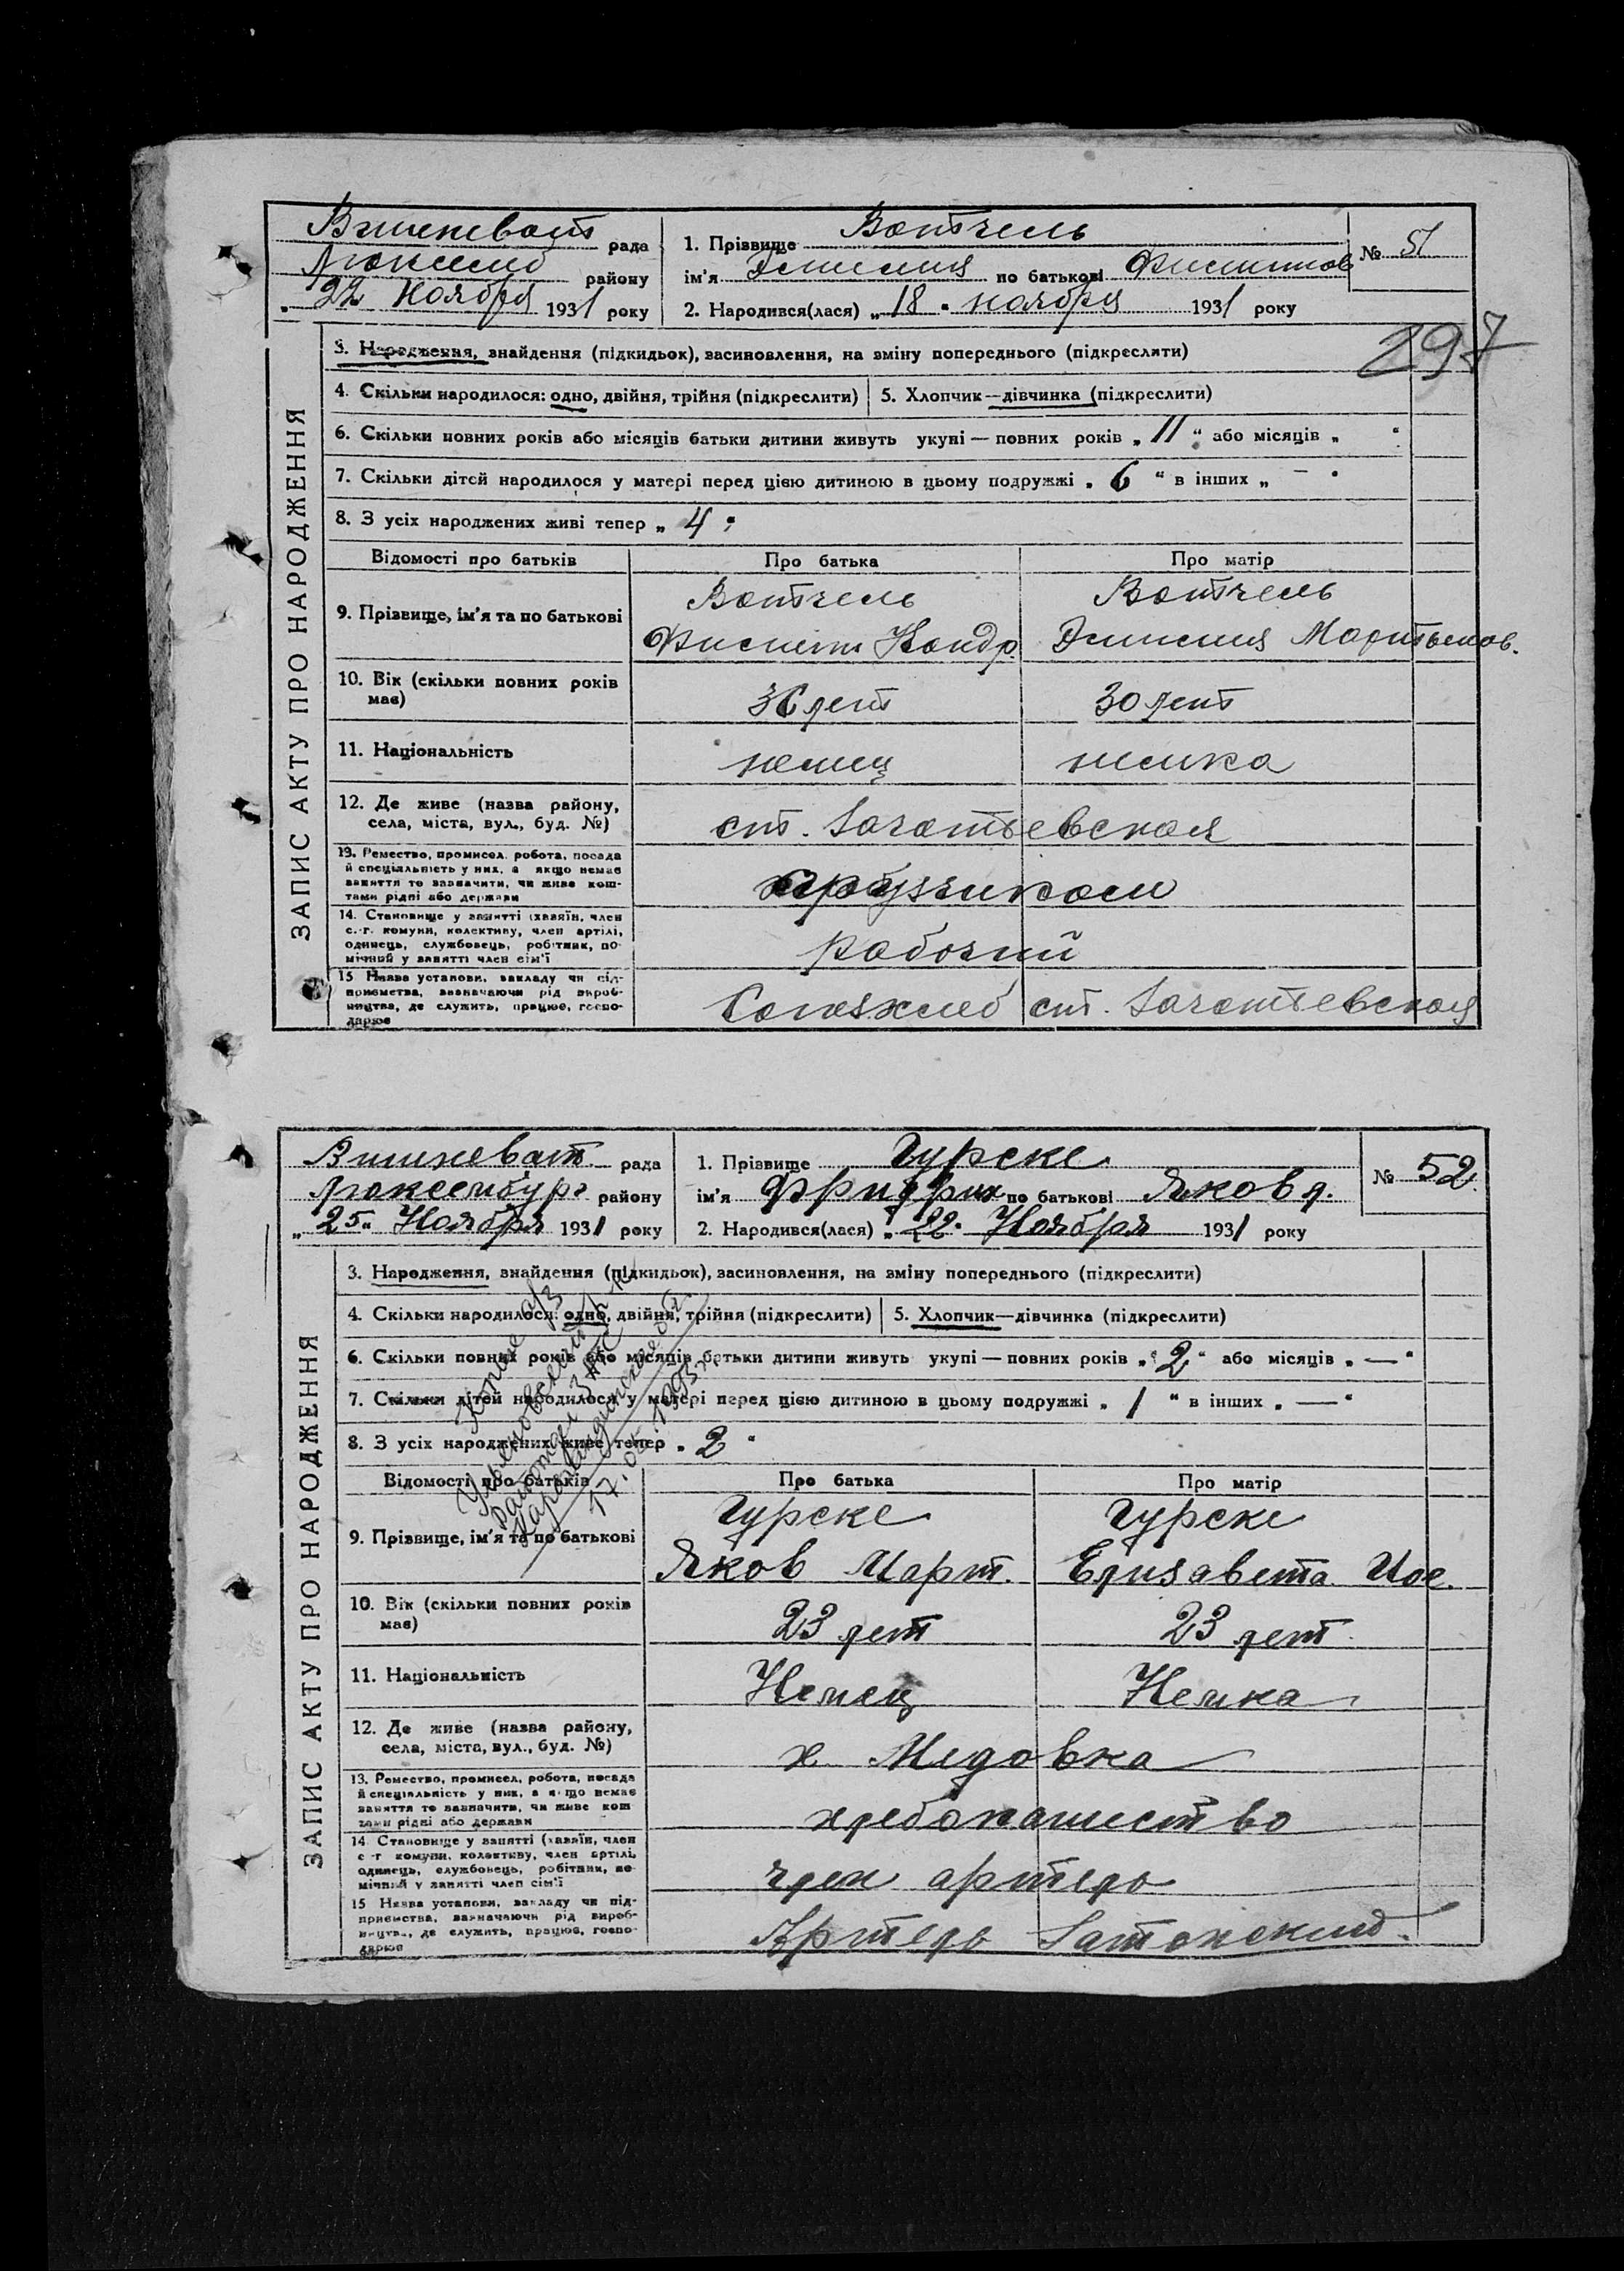 Вишневат рада
Люксемб району
„ 22 Ноября 1931 року
1. Прізвище Вотчель
ім'я Эмилия по батькові Филиппов
№ 51
2. Народився(лася) „ 18 " ноября 1931 року
297
ЗАПИС АКТУ ПРО НАРОДЖЕННЯ
3. Народження, знайдення (підкидьок), засиновлення, на зміну попереднього (підкреслити)
4. Скільки народилося: одно, двійня, трійня (підкреслити) 5. Хлопчик—дівчинка (підкреслити)
6. Скільки повних років або місяців батьки дитини живуть укупі — повних років „ 11 " або місяців „ "
7. Скільки дітей народилося у матері перед цією дитиною в цьому подружжі „ 6 " в інших „ — "
8. З усіх народжених живі тепер „ 4 "
Відомості про батьків Про батька Про матір
9. Прізвище, ім'я та по батькові
Вотчель Вотчель
Филипп Кондр. Эмилия Мартынов.
10. Вік (скільки повних років має) 36 лет 30 лет
11. Національність немец немка
12. Де живе (назва району, села, міста, вул., буд. №)
ст.
13. Ремество, промисел, робота, посада й спеціяльність у них, а якщо немає заняття то зазначити, чи живе коштами рідні або держави
грузчиком
14. Становище у занятті (хазяїн, член с.-г. комуни, колективу, член артілі, одинець, службовець, робітник, помічний у занятті член сім'ї
рабочий
15 Назва установи, закладу чи підприємства, зазначаючи рід виробництва, де служить, працює, господарює
Союзхлеб ст.
Вишневат рада
Люксембург району
„ 25 " Ноября 1931 року
1. Прізвище Гурске
ім'я Фридрих по батькові Яковл.
№ 52
2. Народився(лася) „ 22 " Ноября 1931 року
ЗАПИС АКТУ ПРО НАРОДЖЕННЯ
3. Народження, знайдення (підкидьок), засиновлення, на зміну попереднього (підкреслити)
4. Скільки народилося: одно, двійня, трійня (підкреслити) 5. Хлопчик—дівчинка (підкреслити)
6. Скільки повних років або місяців батьки дитини живуть укупі — повних років „ 2 " або місяців „ — "
7. Скільки дітей народилося у матері перед цією дитиною в цьому подружжі „ 1 " в інших „ — "
8. З усіх народжених живі тепер „ 2 "
Відомості про батьків Про батька Про матір
9. Прізвище, ім'я та по батькові
Гурске Гурске
Яков Март. Елизавета Иос.
10. Вік (скільки повних років має) 23 лет 23 лет
11. Національність Немец Немка
12. Де живе (назва району, села, міста, вул., буд. №)
х Медовка
13. Ремество, промисел, робота, посада й спеціяльність у них, а якщо немає заняття то зазначити, чи живе коштами рідні або держави
хлебопашество
14 Становище у занятті (хазяїн, член с-г комуни, колективу, член артілі, одинець, службовець, робітник, помічний у занятті член сім'ї
член артель
15 Назва установи, закладу чи підприємства, зазначаючи рід виробництва, де служить, працює, господарює
Артель